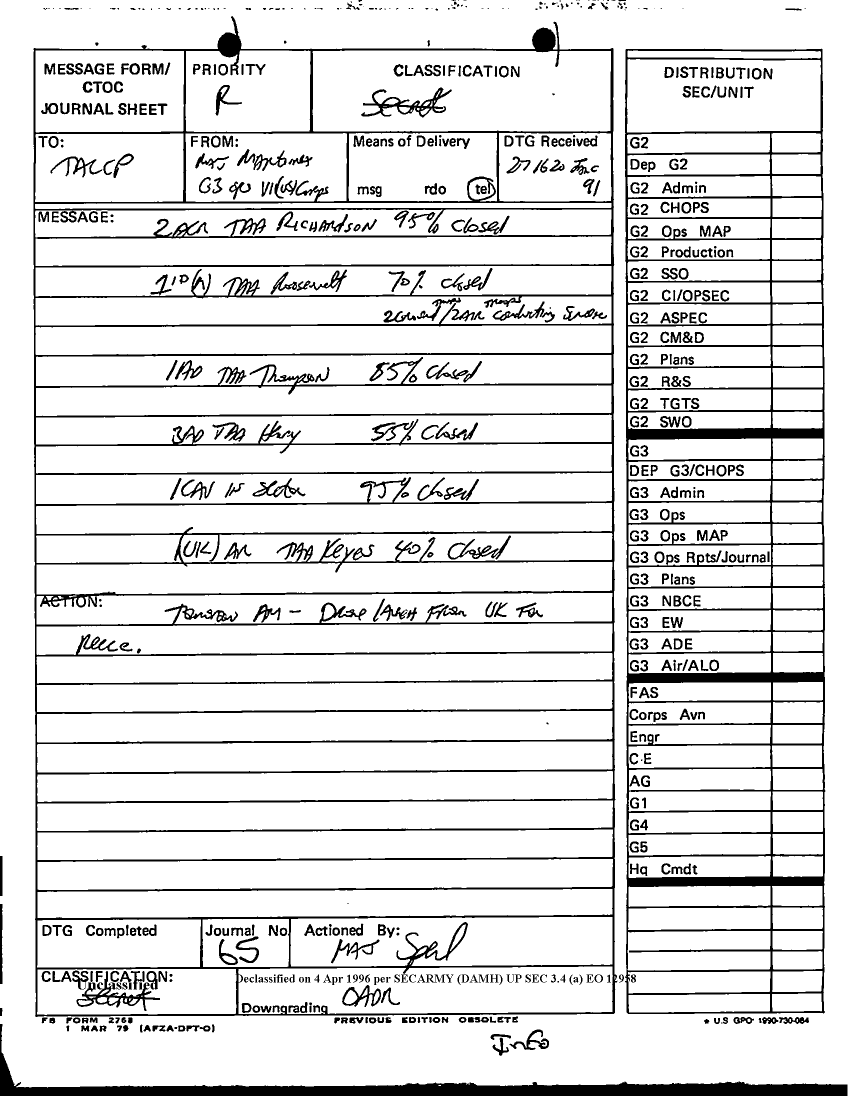 MESSAGE FORM/
CTOC
JOURNAL SHEET
PRIORITY
R
CLASSIFICATION
Secret
DISTRIBUTION
SEC/UNIT
TO:
TACCP
FROM:
MAJ
G3 ops VII(US)Corps
Means of Delivery
msg rdo tel
DTG Received
271620
91
MESSAGE: 2ACR TAA RICHARDSON 95% Closed
1ID(M) TAA Roosevelt 70% closed
conducting
1AD TAA Thompson 85% Closed
3AD TAA Henry 55% Closed
1CAV IN Sector 95% Closed
(UK) AR TAA Keyes 40% Closed
ACTION: Tomorrow AM – From UK For
Recce.
G2
Dep G2
G2 Admin
G2 CHOPS
G2 Ops MAP
G2 Production
G2 SSO
G2 CI/OPSEC
G2 ASPEC
G2 CM&D
G2 Plans
G2 R&S
G2 TGTS
G2 SWO
G3
DEP G3/CHOPS
G3 Admin
G3 Ops
G3 Ops MAP
G3 Ops Rpts/Journal
G3 Plans
G3 NBCE
G3 EW
G3 ADE
G3 Air/ALO
FAS
Corps Avn
Engr
C-E
AG
G1
G4
G5
Hq Cmdt
DTG Completed
Journal No
65
Actioned By:
MAJ
CLASSIFICATION:
Unclassified
Secret
Declassified on 4 Apr 1996 per SECARMY (DAMH) UP SEC 3.4 (a) EO 12958
Downgrading OADR
FB FORM 2768
1 MAR 79 (AFZA-DPT-O)
PREVIOUS EDITION OBSOLETE
* U.S GPO: 1990-730-084
Info